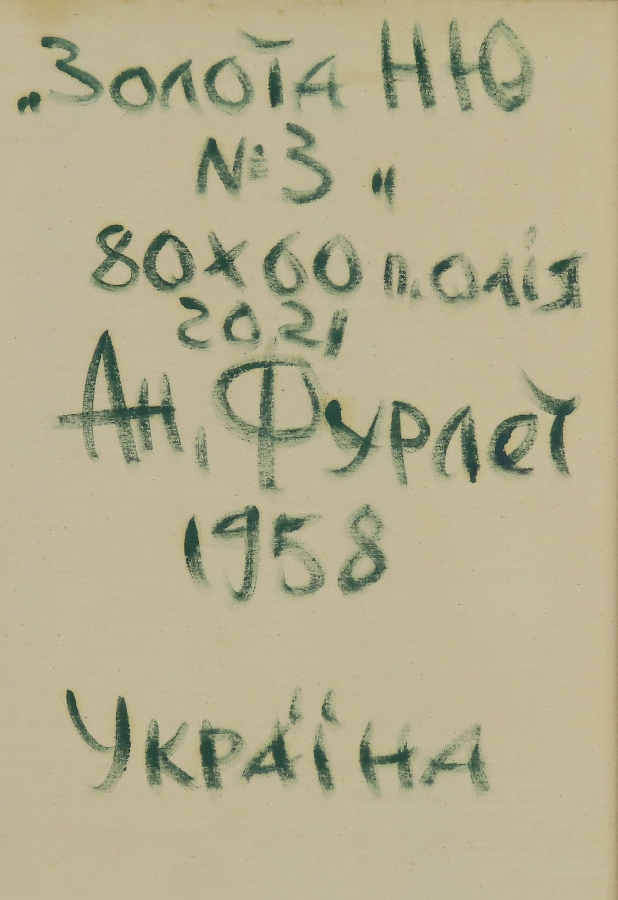 „Золота НЮ
№3"
80х60 п.олія
2021
Ан. Фурлет
1958
Україна